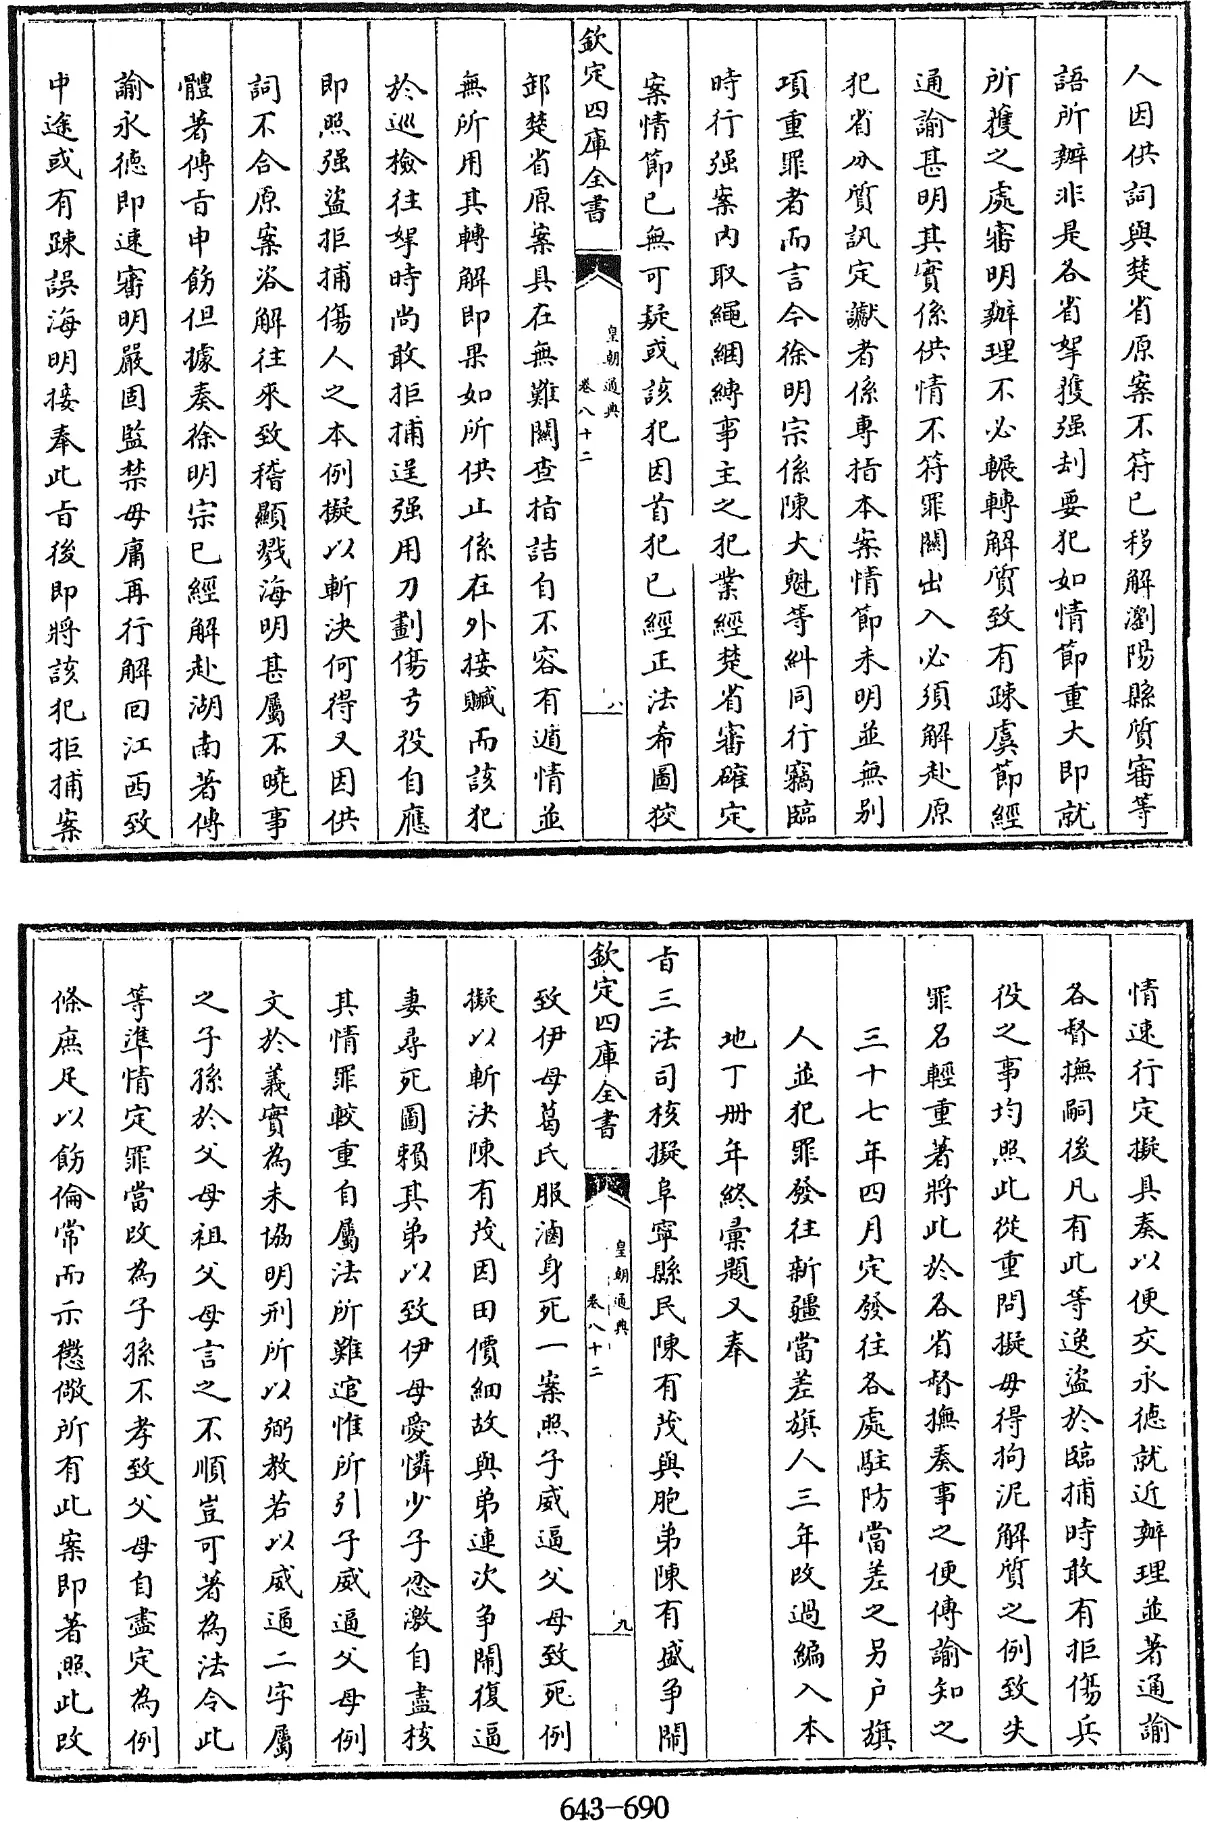 人因供詞與楚省原案不符已移解瀏陽縣質審等
語所辦非是各省拏獲强刦要犯如情節重大即就
所獲之處審明辦理不必輾轉解質致有疎虞節經
通諭甚明其實係供情不符罪關出入必須解赴原
犯省分質訊定讞者係專指本案情節未明並無别
項重罪者而言今徐明宗係陳大魁等糾同行竊臨
時行强案内取繩綑縛事主之犯業經楚省審確定
案情節已無可疑或該犯因首犯已經正法希圖狡
欽定四庫全書
皇朝通典
卷八十二
八
卸楚省原案具在無難關查指詰自不容有遁情並
無所用其轉解即果如所供止係在外接贓而該犯
於巡檢往拏時尚敢拒捕逞强用刀劃傷弓役自應
即照强盜拒捕傷人之本例擬以斬決何得又因供
詞不合原案咨解往來致稽顯戮海明甚屬不曉事
體著傳㫖申飭但據奏徐明宗已經解赴湖南著傳
諭永德即速審明嚴固監禁毋庸再行解回江西致
中途或有疎誤海明接奉此㫖後即將該犯拒捕案
情速行定擬具奏以便交永德就近辦理並著通諭
各督撫嗣後凡有此等逸盜於臨捕時敢有拒傷兵
役之事均照此從重問擬毋得拘泥解質之例致失
罪名輕重著將此於各省督撫奏事之便傳諭知之
三十七年四月定發往各處駐防當差之另户旗
人並犯罪發往新疆當差旗人三年改過編入本
地丁册年終彙題又奉
㫖三法司核擬阜寧縣民陳有茂與胞弟陳有盛争鬧
欽定四庫全書
皇朝通典
卷八十二
九
致伊母葛氏服滷身死一案照子威逼父母致死例
擬以斬決陳有茂因田價細故與弟連次争鬧復逼
妻尋死圖賴其弟以致伊母愛憐少子忿激自盡核
其情罪較重自屬法所難逭惟所引子威逼父母例
文於義實為未協明刑所以弼教若以威逼二字屬
之子孫於父母祖父母言之不順豈可著為法令此
等準情定罪當改為子孫不孝致父母自盡定為例
條庶足以飭倫常而示懲儆所有此案即著照此改
643-690